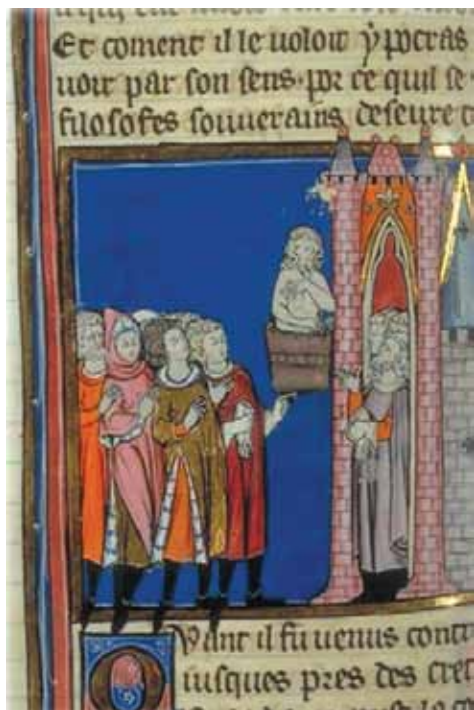 Et coment il le uoloit ypocras
uoir par son sens. por ce quil se
filosofes souuerains deseure
Quant il fu uenus contr
iusques pres des cre